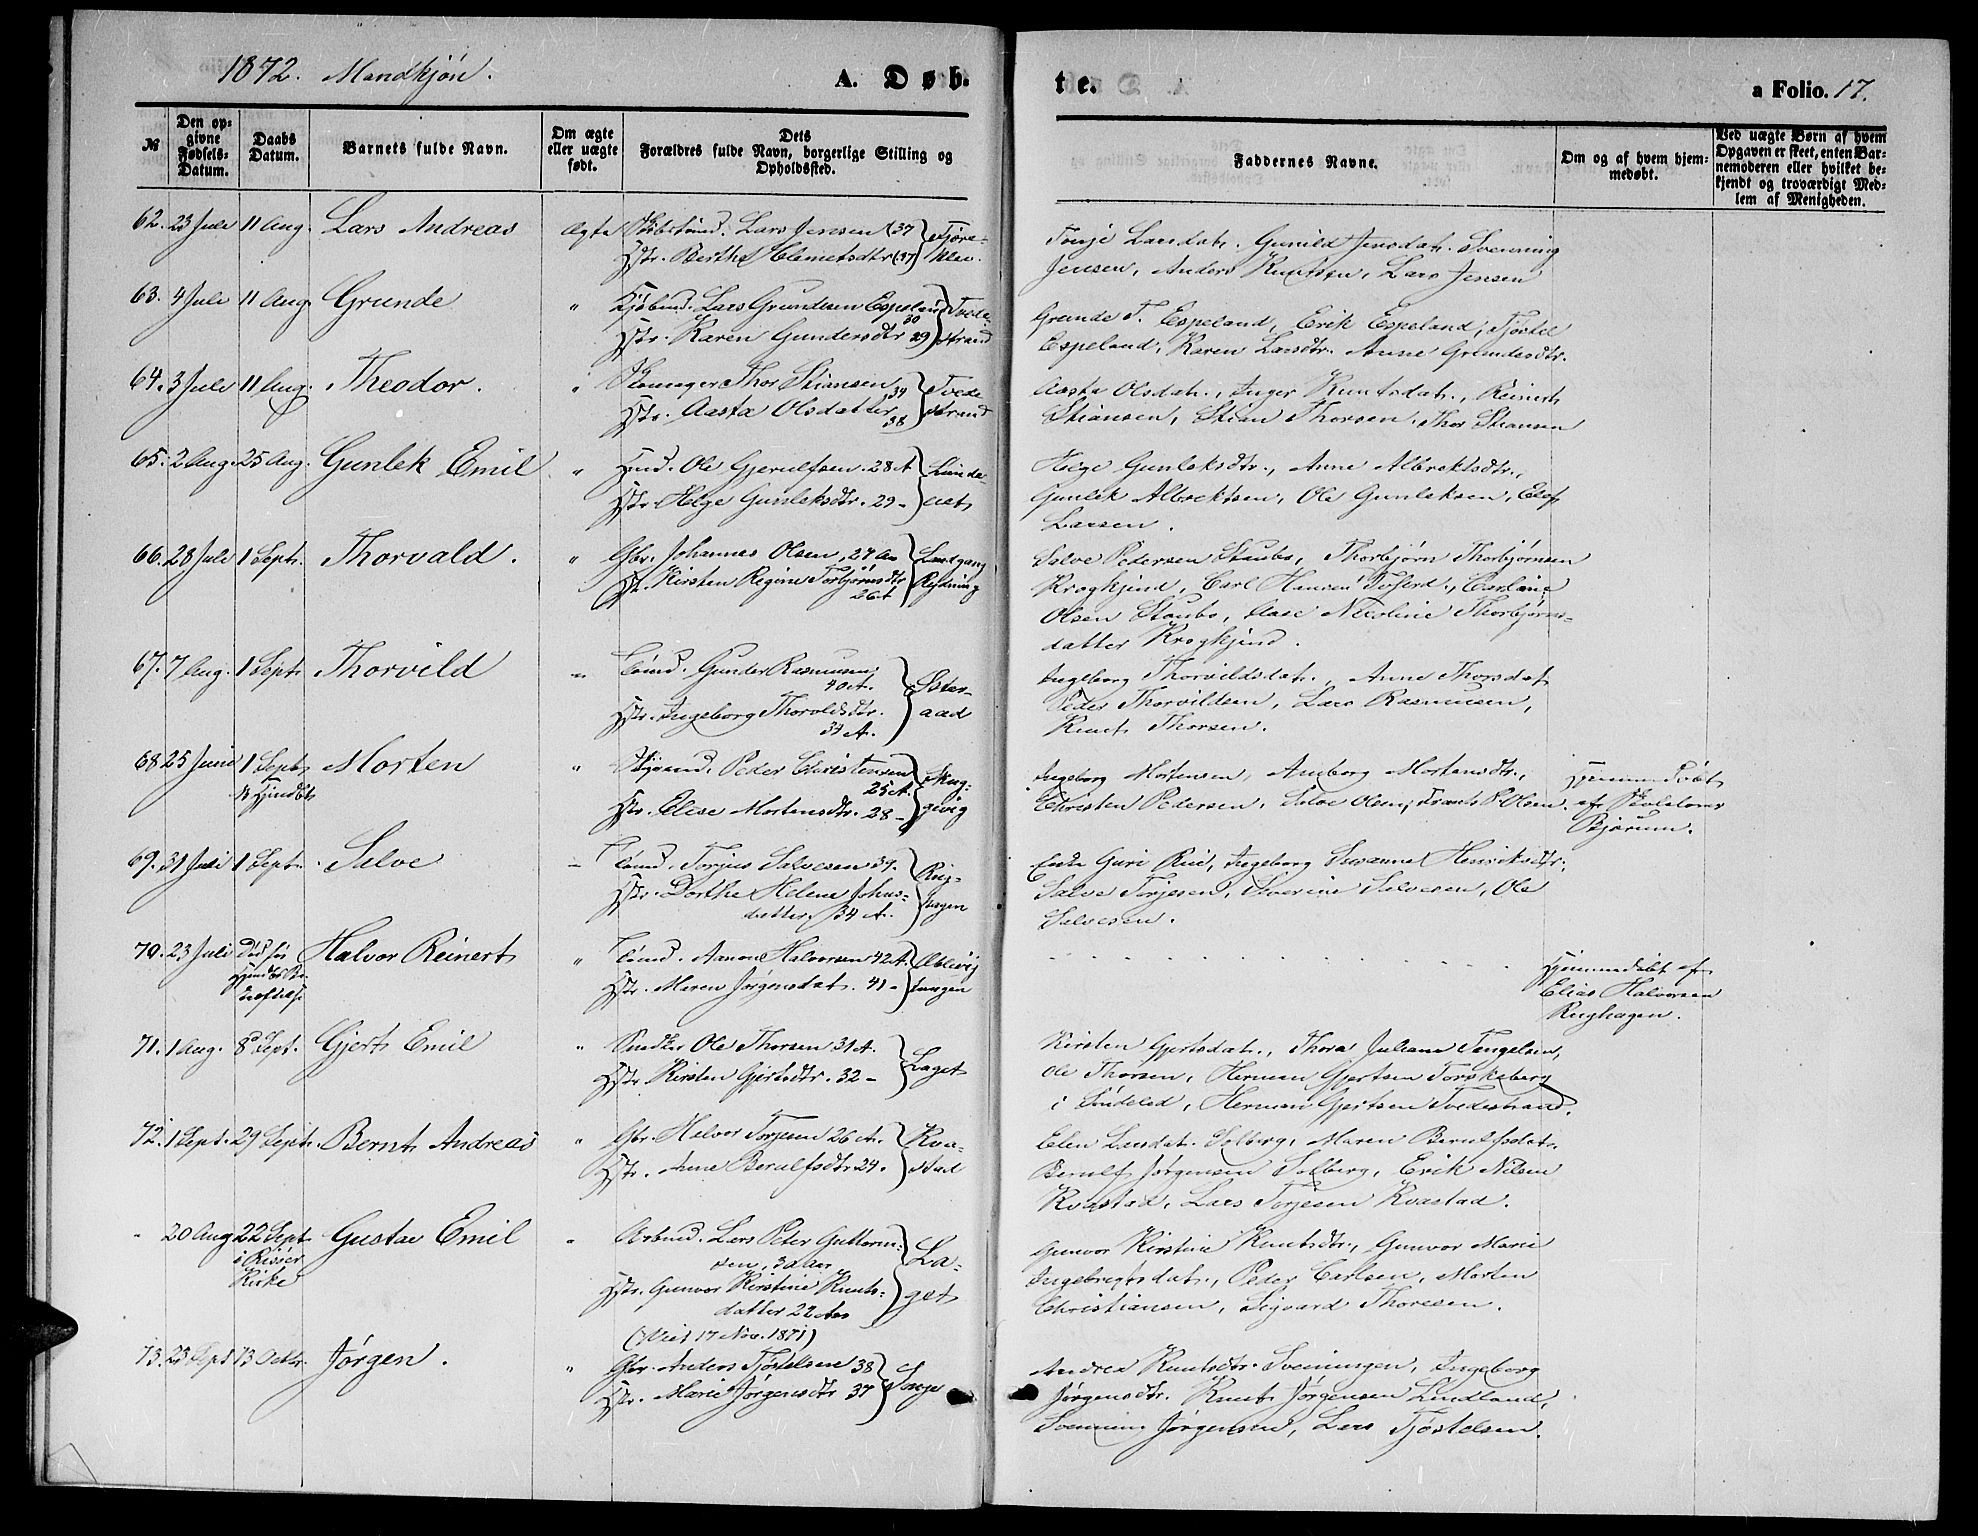 1872. Mandkjøn.
A. Døb-
te.
a Folio. 17.
№
Den op-
givne
Fødsels-
Datum.
Daabs
Datum.
Barnets fulde Navn.
Om ægte
eller uægte
født.
Dets
Forældres fulde Navn, borgerlige Stilling og
Opholdssted.
Faddernes Navne.
Om og af hvem hjem-
medøbt.
Ved uægte Børn af hvem
Opgaven er skeet, enten Bar-
nemoderen eller hvilket be-
kjendt og troværdigt Med-
lem af Menigheden.
62. 23 Juli 11 Aug. Lars Andreas Ægte Lars Jensen (37
Hstr. Berthe Clemetsdtr (37)
Tonje Larsdat. Gunild Jensdat. Svenning
Jensen, Anders Knutsen, Lars Jensen
63. 4 Juli 11 Aug. Grunde " Kjøbmd. Lars Grundesen Espeland 30 Tvede-
Hstr. Karen Gundersdtr 29) strand
Grunde T. Espeland, Erik Espeland, Tjøstel
Espeland, Karen Larsdtr. Anne Grundesdtr.
64. 3 Juli 11 Aug. Theodor. " Thor Stiansen 34 Tvede
Hstr. Aasta Olsdatter 38 strand
Aasta Olsdat., Inger Knutsdat., Reinert
Stiansen, Stian Thorsen, Thor Stiansen
65. 2 Aug. 25 Aug. Gunlek Emil " Hmd. Ole Gjerulfsen. 28 A Lunde-
Hstr. Helge Gunleksdtr. 29 -
Helge Gunleksdtr., Anne Albrektsdtr.,
Gunlek Albrektsen, Ole Gunleksen, Elef
Larsen.
66. 28 Juli 1 Sept. Thorvald. " Gbr. Johannes Olsen, 27 Aar
Hst. Kirsten Regine Torbjørnsdtr Rydning
26 A
Salve Pedersen Staubø, Thorbjørn Thorbjørnsen
Krogkjend, Carl Hansen, Caroline
Olsen Staubø, Aase Nicoline Thorbjørns-
datter Krogkjend.
67. 7 Aug. 1 Sept. Thorvild " Tømd. Gunder Rasmussen Øster-
40 A.
Hstr. Ingeborg Thorvoldsdtr. aad
34 A.
Ingeborg Thorvildsdat., Anne Thorsdat
Peder Thorvildsen, Lars Rasmussen,
Knut Thorsen.
68 25 Juni 1 Sept Morten " Peder Christensen
25 A.
Hstr. Elise Mortensdtr. 28 -
Ingeborg Mortensen, Amborg Mortensdtr.,
Christen Pedersen, Salve Olsen, Frants P. Olsen.
Hjemmedøbt
af Skolelærer
Bjorum.
69. 31 Juli 1 Sept. Salve - Tømd. Torjus Salvesen 39.
Hstr. Dorthe Helene Johns-
datter, 34 A.
Guri Rui, Ingeborg Susanne Henriksdtr.
Salve Torjesen, Severine Salvesen, Ole
Salvesen.
70. 23 Juli Død før Halvor Reinert " Tømd. Aanon Halvorsen 42 A.
Hstr. Maren Jørgensdat. 41 -
Hjemmedøbt af
Elias Halvorsen
Rughagen.
71. 1 Aug. 8 Sept. Gjert Emil " Smeder Ole Thorsen 31 A. Laget
Hstr. Kirsten Gjertsdtr. 32 -
Kirsten Gjertsdat., Thora Juliane Tengelsen,
Ole Thorsen, Herman Gjertsen Torskeberg
i Søndeled, Herman Gjertsen Tvedestrand.
72. 1 Sept. 29 Sept. Bernt Andreas " Gbr. Halvor Torjesen 26 A. Kva-
Hstr. Anne Berulfsdtr 24. stad
Elen Larsdat. Solberg, Maren Berulfsdat.
Berulf Jørgensen Solberg, Erik Nilsen
Kvastad, Lars Torjesen Kvastad.
" 20 Aug 22 Sept. Gustav Emil " Arbmd. Lars Peter Guttorm- La-
i Risøer sen, 32 Aar
Kirke Hstr. Gunvor Kirstine Knuts- get
datter 22 Aar
(Viet 17 Nov. 1871)
Gunvor Kirstine Knutsdtr., Gunvor Marie
Ingebregtsdat., Peder Carlsen, Morten
Christiansen, Sigvard Thoresen.
73. 23 Sept 13 Octbr. Jørgen. " Gbr. Anders Tjøstelsen 38 Songe
Hstr. Marie Jørgensdtr 37
Andrea Knutsdtr. Sveningen, Ingeborg
Jørgensdtr. Knut Jørgensen Lindland,
Svenning Jørgensen, Lars Tjøstelsen.